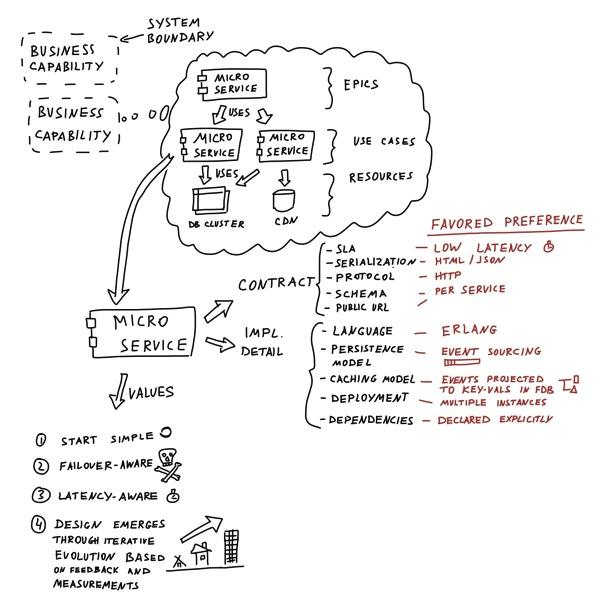 SYSTEM
BOUNDARY
BUSINESS
CAPABILITY
BUSINESS
CAPABILITY
MICRO
SERVICE
EPICS
USES
MICRO
SERVICE
MICRO
SERVICE
USE CASES
USES
RESOURCES
DB CLUSTER
CDN
FAVORED PREFERENCE
CONTRACT
- SLA — LOW LATENCY
- SERIALIZATION — HTML/JSON
- PROTOCOL — HTTP
- SCHEMA — PER SERVICE
- PUBLIC URL
MICRO
SERVICE
IMPL.
DETAIL
- LANGUAGE — ERLANG
- PERSISTENCE — EVENT SOURCING
MODEL
- CACHING MODEL — EVENTS PROJECTED
TO KEY-VALS IN FDB
- DEPLOYMENT — MULTIPLE INSTANCES
- DEPENDENCIES — DECLARED EXPLICITLY
VALUES
1 START SIMPLE
2 FAILOVER-AWARE
3 LATENCY-AWARE
4 DESIGN EMERGES
THROUGH ITERATIVE
EVOLUTION BASED
ON FEEDBACK AND
MEASUREMENTS